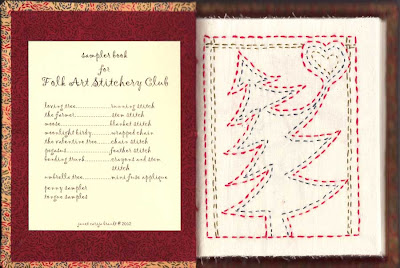 sampler book
for
Folk Art Stitchery Club
loving tree..........running stitch
the farmer..........stem stitch
moose..........blanket stitch
moonlight birdy..........wrapped chain
the valentine tree..........chain stitch
pegasus..........feather stitch
bending trunk..........crayons and stem
stitch
umbrella tree..........mini fuse applique
penny samples
tongue samples
2012